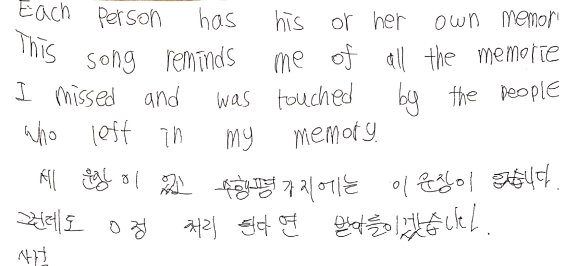 Each person has his or her own memor
This song reminds me of all the memorie
I missed and was touched by the people
who left in my memory.
세 문장이 있고 수행평가지에는 이 문장이 없습니다.
그런데도 0점 처리 된다면 받아들이겠습니다.